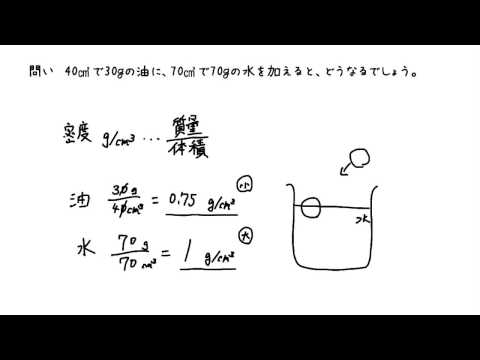 問い 40㎤で30gの油に、70㎤で70gの水を加えると、どうなるでしょう。
密度 g/cm³ … 質量/体積
油 30g/40cm³ = 0.75 g/cm³ 小
水 70g/70cm³ = 1 g/cm³ 大
水